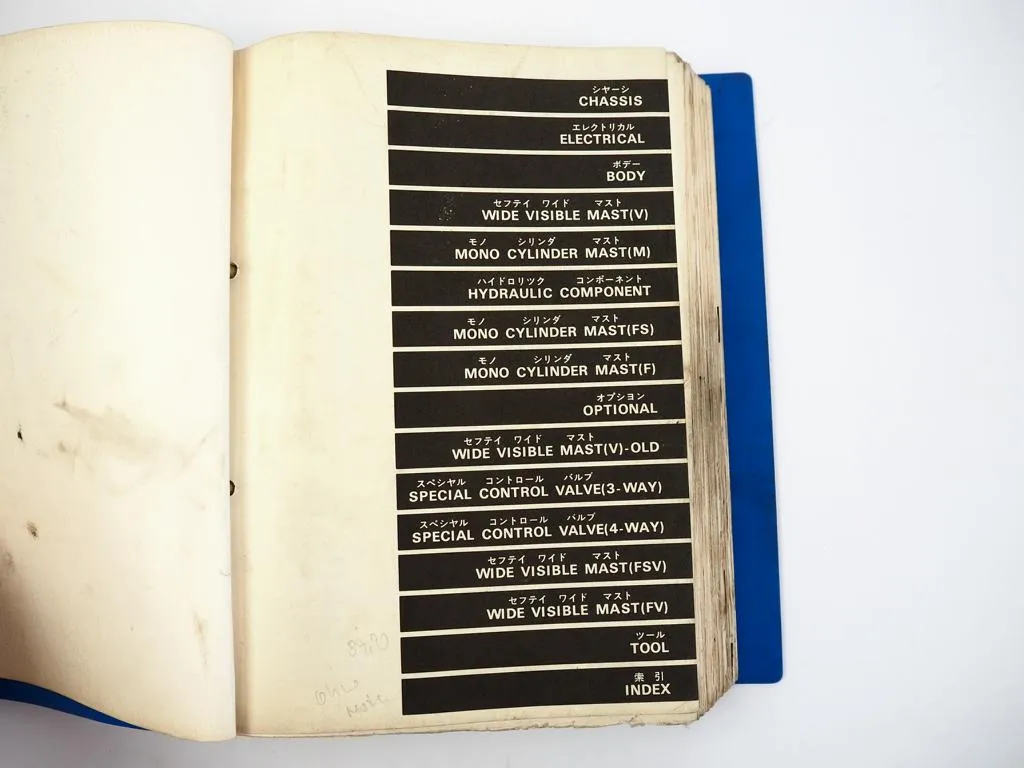 シヤーシ
CHASSIS
エレクトリカル
ELECTRICAL
ボデー
BODY
セフテイ ワイド マスト
WIDE VISIBLE MAST(V)
モノ シリンダ マスト
MONO CYLINDER MAST(M)
ハイドロリツク コンポーネント
HYDRAULIC COMPONENT
モノ シリンダ マスト
MONO CYLINDER MAST(FS)
モノ シリンダ マスト
MONO CYLINDER MAST(F)
オプシヨン
OPTIONAL
セフテイ ワイド マスト
WIDE VISIBLE MAST(V)-OLD
スペシヤル コントロール バルブ
SPECIAL CONTROL VALVE(3-WAY)
スペシヤル コントロール バルブ
SPECIAL CONTROL VALVE(4-WAY)
セフテイ ワイド マスト
WIDE VISIBLE MAST(FSV)
セフテイ ワイド マスト
WIDE VISIBLE MAST(FV)
ツール
TOOL
索引
INDEX